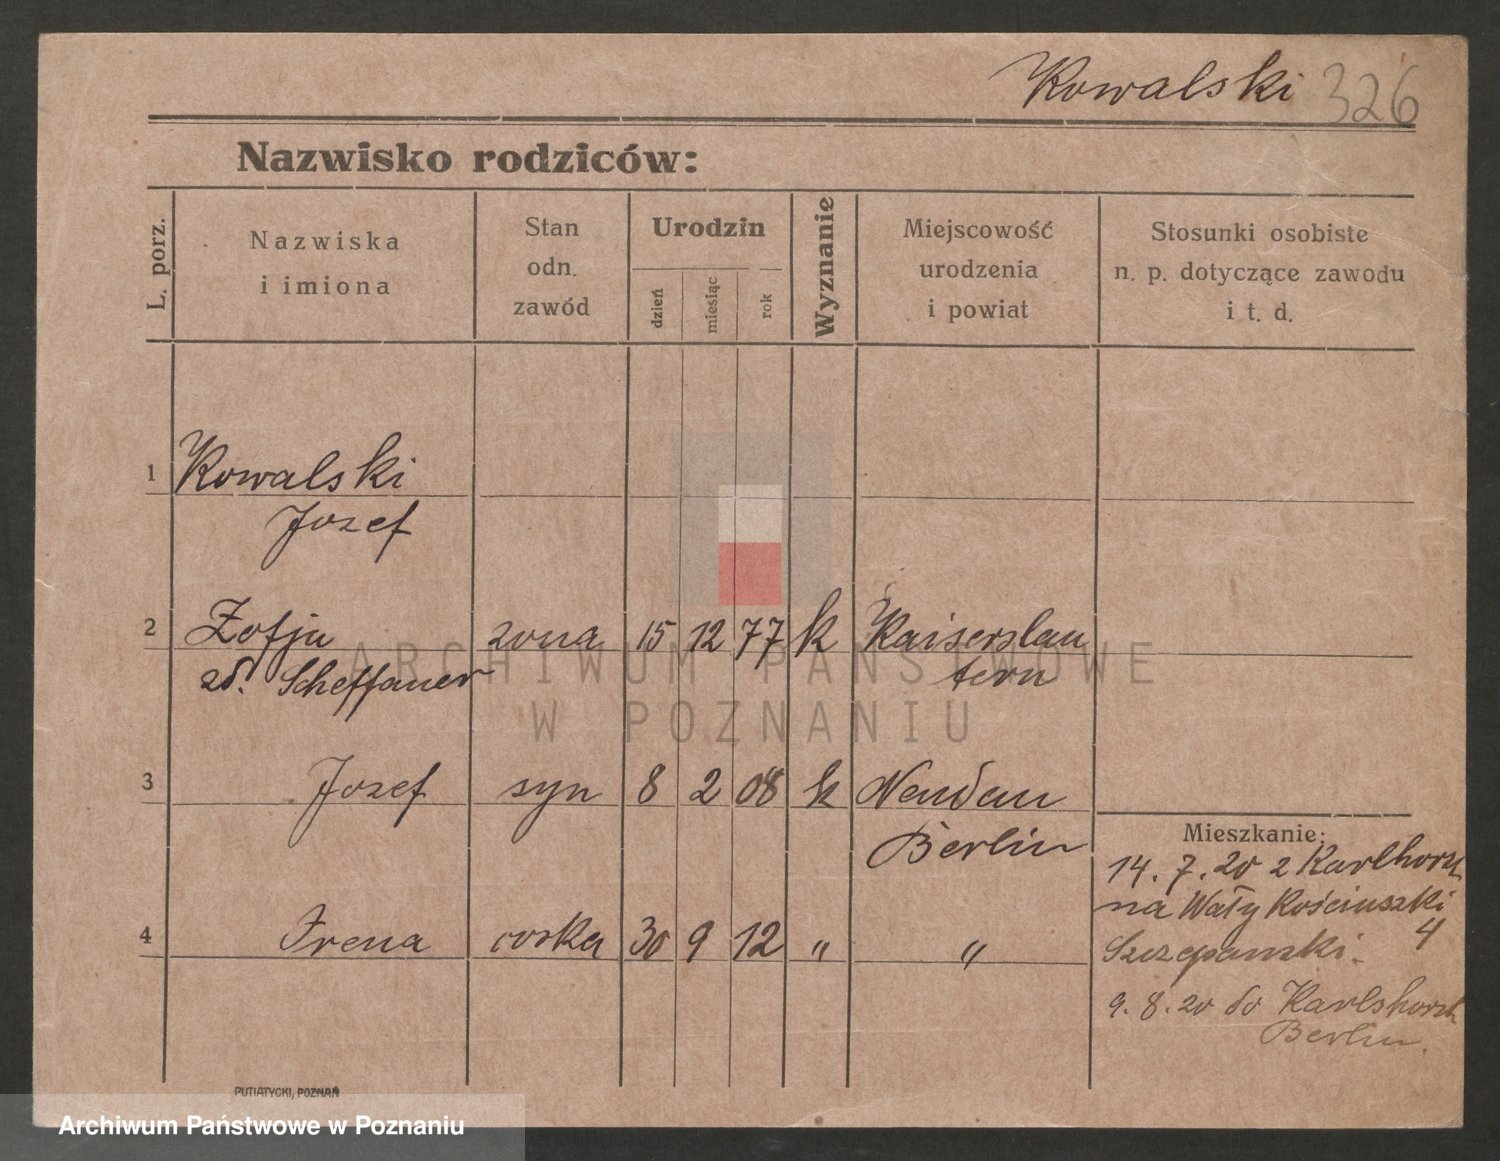 Kowalski 326
Nazwisko rodziców:
L. porz.
Nazwiska
i imiona
Stan
odn.
zawód
Urodzin
dzień
miesiąc
rok
Wyznanie
Miejscowość
urodzenia
i powiat
Stosunki osobiste
n. p. dotyczące zawodu
i t. d.
1 Kowalski
Jozef
2 Zofja zona 15 12 77 k Kaiserslau
zd. Scheffauer tern
ARCHIWUM PAŃSTWOWE
W POZNANIU
3 Jozef syn 8 2 08 k
Berlin
Mieszkanie:
14. 7. 20 z Karlhorst
na Wały Kościuszki
4
4 Irena corka 30 9 12 " "
Szczepanski.
9. 8. 20 do Karlshorst
Berlin.
PUTIATYCKI, POZNAŃ
Archiwum Państwowe w Poznaniu